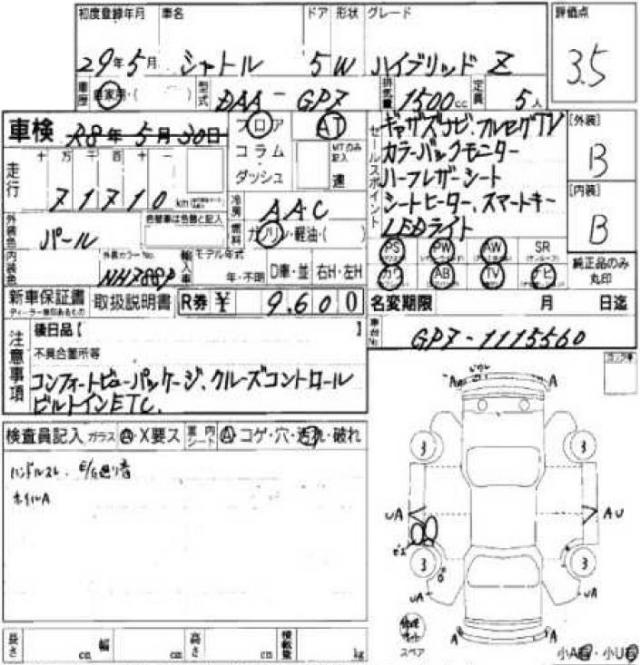 初度登録年月 車名 ドア 形状 グレード 評価点
29年5月 シャトル 5 W ハイブリッド Z 3.5
車歴 自家用・( ) 型式 DAA-GP7 排気量 1500cc 定員 5人
車検 R8年5月30日 フロア AT
コラム MTのみ記入
ダッシュ 速
走行 十 万 千 百 十 一
71710 km
冷房 AAC
燃料 ガソリン・軽油・( )
セールスポイント
ギャザズナビ、フルセグTV
カラーバックモニター
ハーフレザーシート
シートヒーター、スマートキー
LEDライト
[外装]
B
[内装]
B
外装色 パール 色替車は色替と記入
内装色 外装カラーNo. NH788P 輸入車 モデル年式 年・不明 D車・並 右H・左H
PS PW AW SR
カワ AB TV ナビ
純正品のみ丸印
新車保証書 取扱説明書 R券 ¥ 9,600
名変期限 月 日迄
車台No GP7-1115560
注意事項
後日品【 】
不具合箇所等
コンフォートビューパッケージ、クルーズコントロール
ビルトインETC.
検査員記入 ガラス A・X要ス 室内シート A コゲ・穴・汚れ・破れ
ハンドルスレ
ホイルA
A A
3 3
UA AU
3 3
UA UA
A A
スペア
小A・小U
長さ cm 幅 cm 高さ cm 積載量 kg